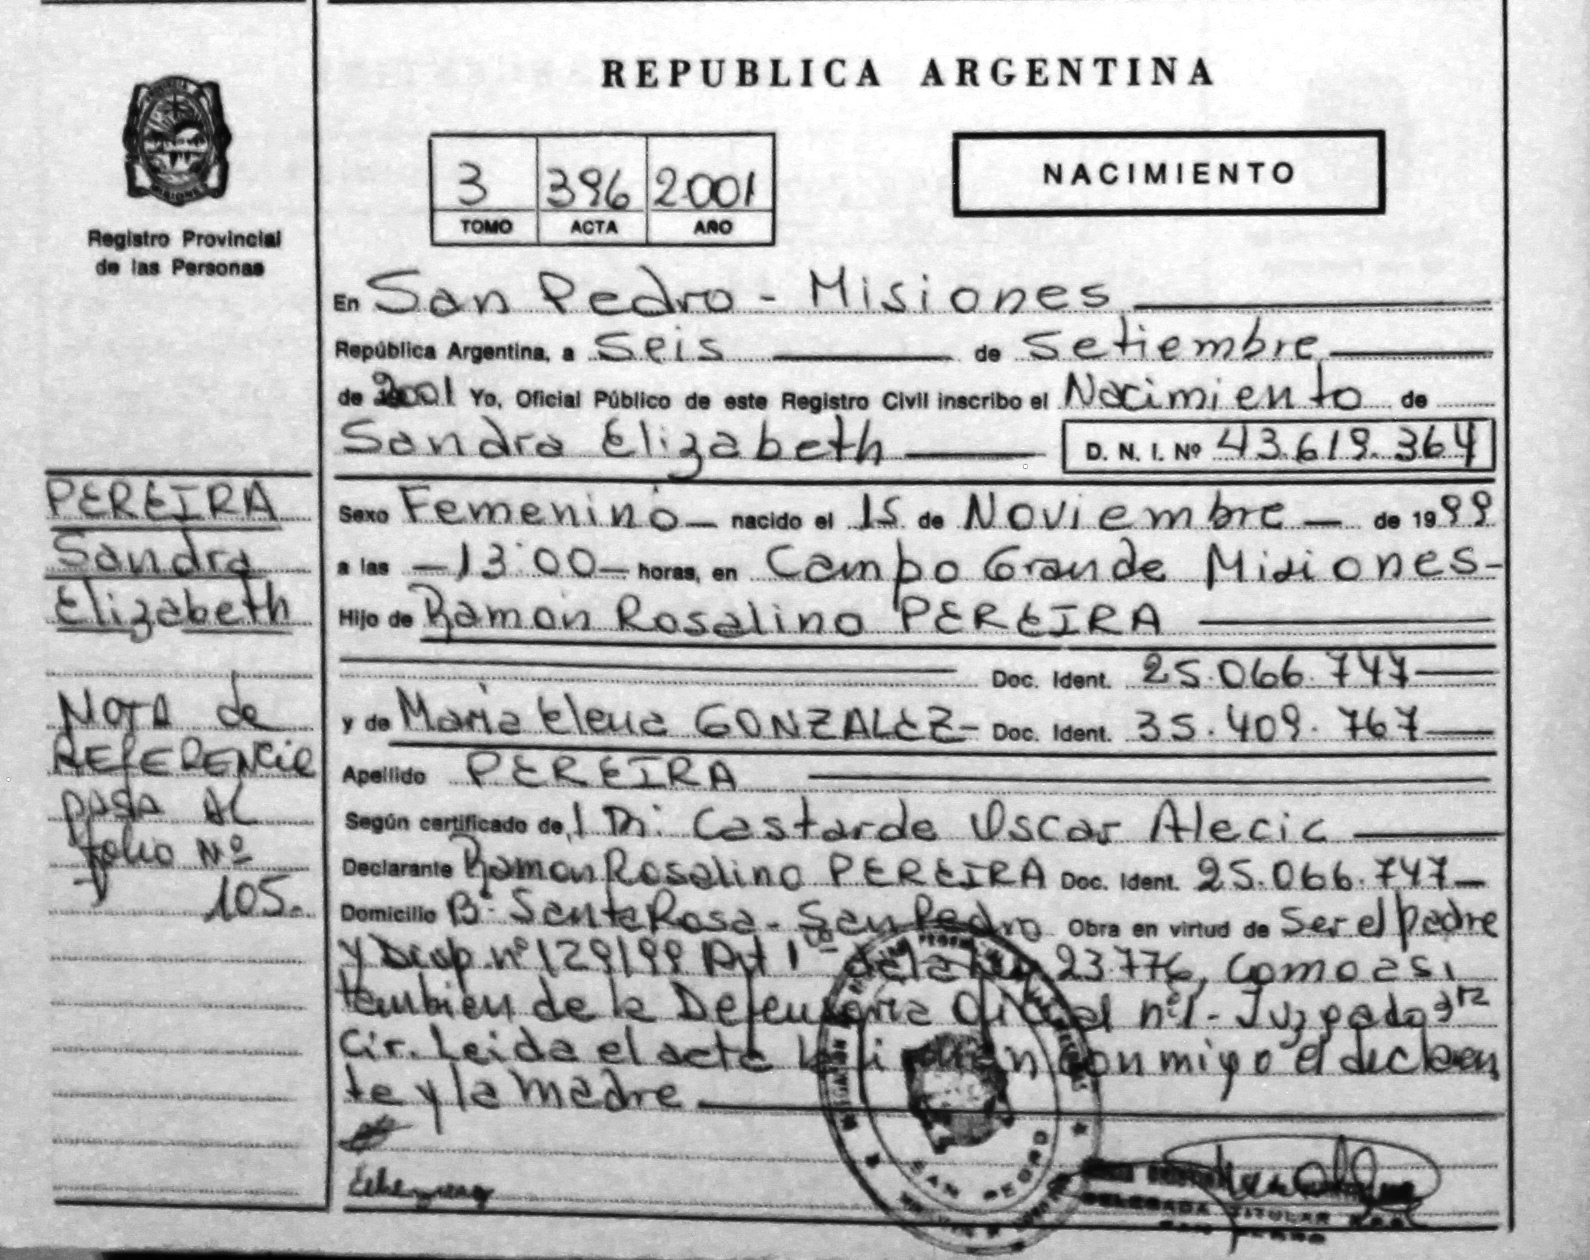 REPUBLICA ARGENTINA
3 396 2001
TOMO ACTA AÑO
NACIMIENTO
MISIONES
Registro Provincial
de las Personas
En San Pedro - Misiones
República Argentina, a Seis de Setiembre
de 2001 Yo, Oficial Público de este Registro Civil inscribo el Nacimiento de
Sandra Elizabeth D. N. I. Nº 43.619.364
PEREIRA
Sandra
Elizabeth
Sexo Femenino nacido el 15 de Noviembre de 1999
a las 13:00 horas, en Campo Grande Misiones-
Hijo de Ramón Rosalino PEREIRA
Doc. Ident. 25.066.747
y de Maria Elena GONZALEZ- Doc. Ident. 35.409.767
Apellido PEREIRA
Nota de
REFERENCIA
pasa AL
folio Nº
105.
Según certificado de Castarde Oscar Alecic
Declarante Ramon Rosalino PEREIRA Doc. Ident. 25.066.747
Domicilio Bº Santa Rosa - San Pedro Obra en virtud de Ser el padre
y Disp. nº 129/99 Art 1º de la ley 23776, como asi
tambien de la Defensoria Oficial nº1- Juzgado 3ra
Cir. Leida el acta la firman conmigo el declaran
te y la madre
SAN PEDRO
DELEGADA TITULAR R.P.P.
SAN PEDRO